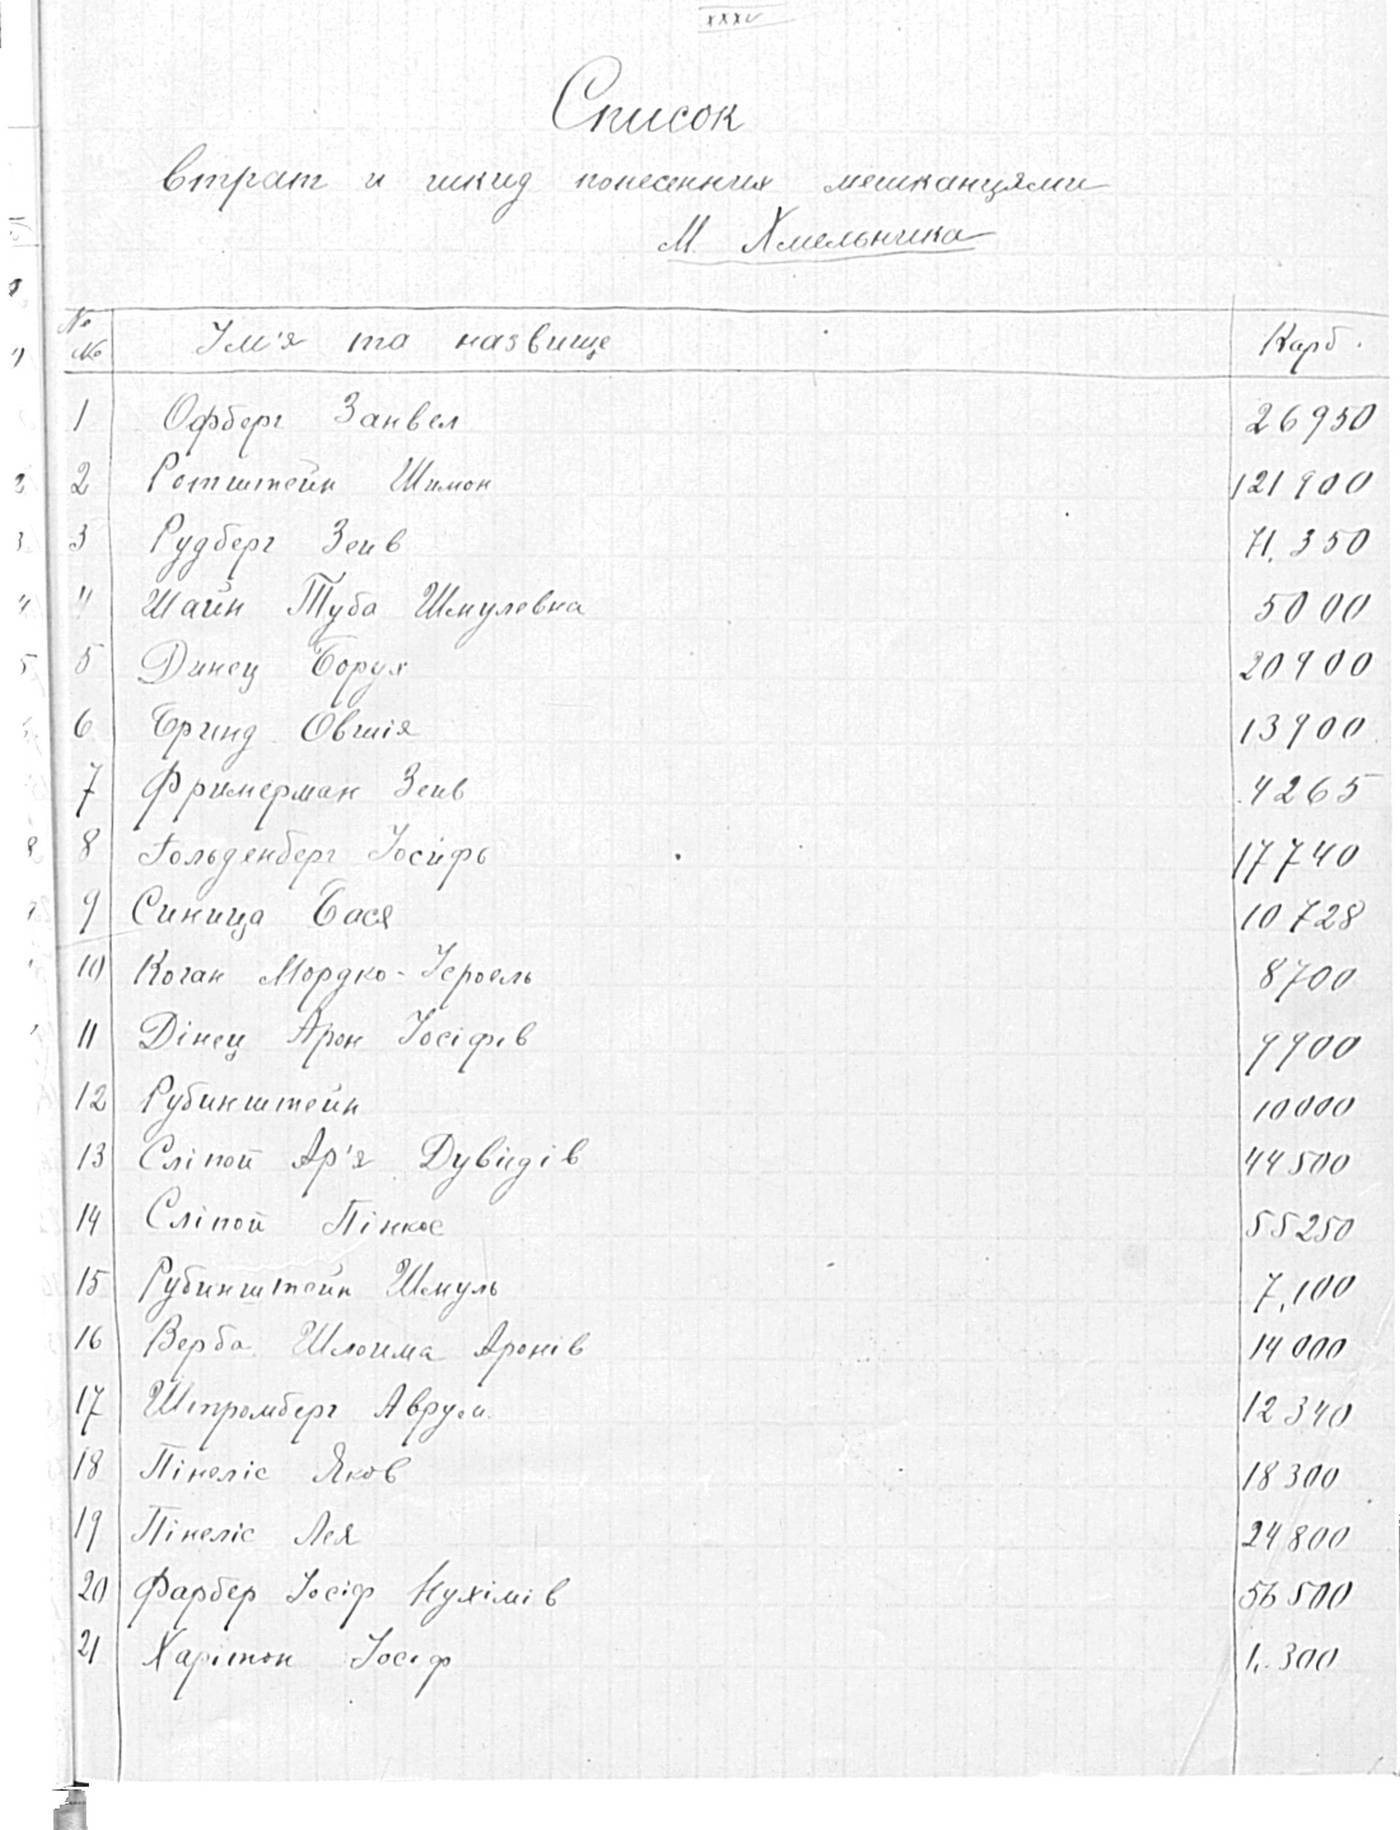 xxxv
Список
Втрат и шкид понесенних мешканцями
М. Хмельника
№ №  Ім'я та назвище  Карб.
1 Офберг Занвел 26950
2 Ротштейн Шимон 121900
3 Рудберг Зеив 71.350
4 Шайн Туба Шмулевна 5000
5 Динец Борух 20900
6 Бринд Овшія 13900
7 Фримерман Зеив 4265
8 Гольденберг Іосифь 17740
9 Синица Бася 10728
10 Коган Мордко-Ісроель 8700
11 Дінец Арон Іосіфів 9900
12 Рубинштейн 10000
13 Сліпой Ар'я Дувідів 44500
14 Сліпой Пінкос 55250
15 Рубинштейн Шмуль 7.100
16 Верба Шлоима Аронів 14000
17 Штромберг Аврум 12340
18 Пінеліс Яков 18300
19 Пінеліс Лея 24800
20 Фарбер Іосіф Нухімів 56500
21 Харітон Іосіф 1.300